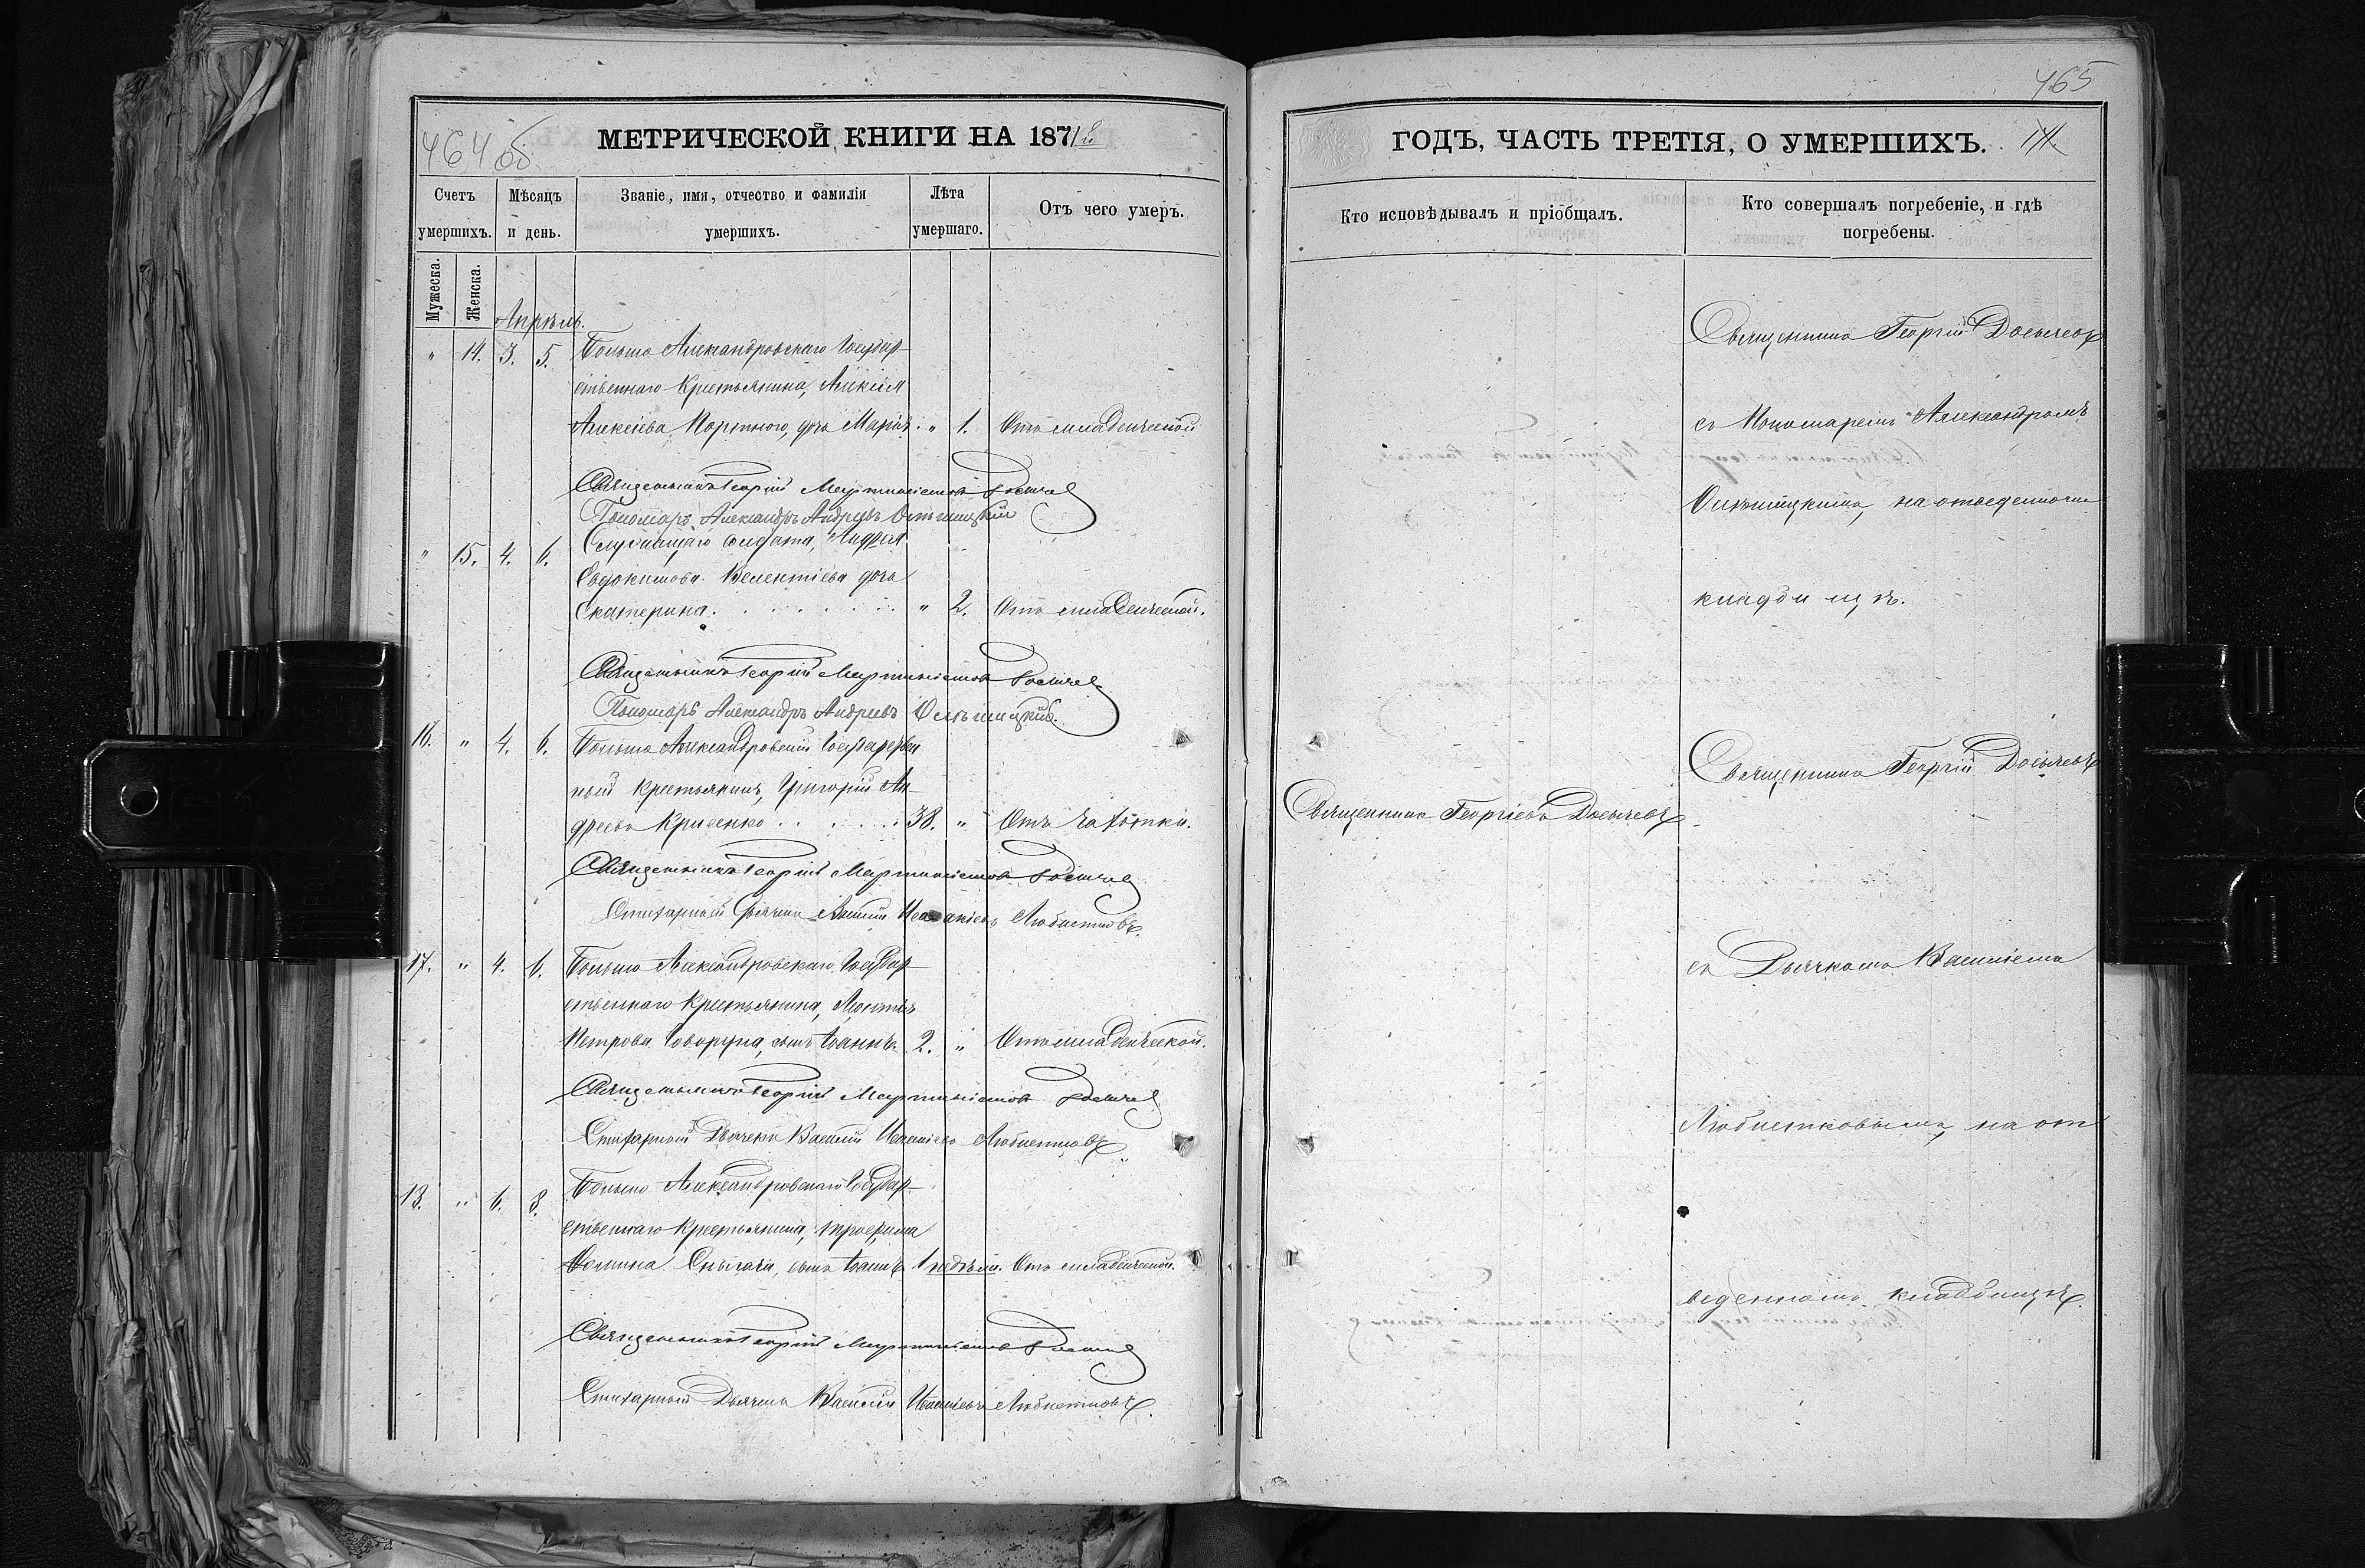 464 об
МЕТРИЧЕСКОЙ КНИГИ НА 1871й
Счетъ умершихъ.
Мѣсяцъ и день.
Званіе, имя, отчество и фамилія умершихъ.
Лѣта умершаго.
Отъ чего умеръ.
Мужеска.
Женска.
Апрѣль.
" 14. 3. 5. Больше Александровскаго Государ-
ственнаго Крестьянина, Алексѣя
Алексѣева Портного, дочь Марія. " 1. Отъ младенческой
Священникъ Георгій Мартиніановъ Досычевъ
Пономарь Александръ Андреевъ
" 15. 4. 6. Служащаго солдата, Андрея
Евдокимова Келентіева дочь
Екатерина. " 2. Отъ младенческой.
Священникъ Георгій Мартиніановъ Досычевъ
Пономарь Александръ Андреевъ
16. " 4. 6. Больше Александровскій Государствен
ный крестьянинъ, Григорій Ан-
дреевъ Крисенко 38. " Отъ чахотки.
Священникъ Георгій Мартиніановъ Досычевъ
Стихарный Дьячекъ Василій Любистковъ.
17. " 4. 6. Больше Александровскаго Государ-
ственнаго Крестьянина, Леонтія
Петрова Говоруна, сынъ Іоаннъ. 2. " Отъ младенческой.
Священникъ Георгій Мартиніановъ Досычевъ
Стихарный Дьячекъ Василій Любистковъ
18. " 6. 8. Больше Александровскаго Государ-
ственнаго Крестьянина, Трофима
Фомина сынъ Іоаннъ 1 недѣли. Отъ младенческой.
Священникъ Георгій Мартиніановъ Досычевъ
Стихарный Дьячекъ Василій Любистковъ.
465
ГОДЪ, ЧАСТЬ ТРЕТІЯ, О УМЕРШИХЪ.
Кто исповѣдывалъ и пріобщалъ.
Кто совершалъ погребеніе, и гдѣ погребены.
Священникъ Георгій Досычевъ
съ Пономаремъ Александромъ
на отведенномъ
кладбищѣ.
Священникъ Георгій Досычевъ
Священникъ Георгіевъ Досычевъ
съ Дьячкомъ Василіемъ
Любистковымъ, на от
веденномъ кладбищѣ.